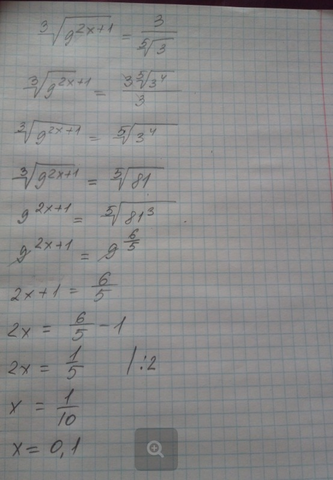 ∛(9^(2x+1)) = 3/⁵√3
∛(9^(2x+1)) = 3⁵√(3^4)/3
∛(9^(2x+1)) = ⁵√(3^4)
∛(9^(2x+1)) = ⁵√81
9^(2x+1) = ⁵√(81^3)
9^(2x+1) = 9^(6/5)
2x+1 = 6/5
2x = 6/5 - 1
2x = 1/5 | :2
x = 1/10
x = 0,1